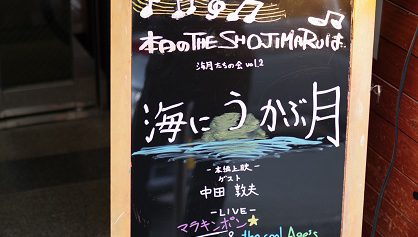 本日のTHE SHOJIMARUは..
海月たちの会 vol.2
海にうかぶ月
-本編上映-
ゲスト
中田 敦夫
-LIVE-
マラキンポン
the cool Age's